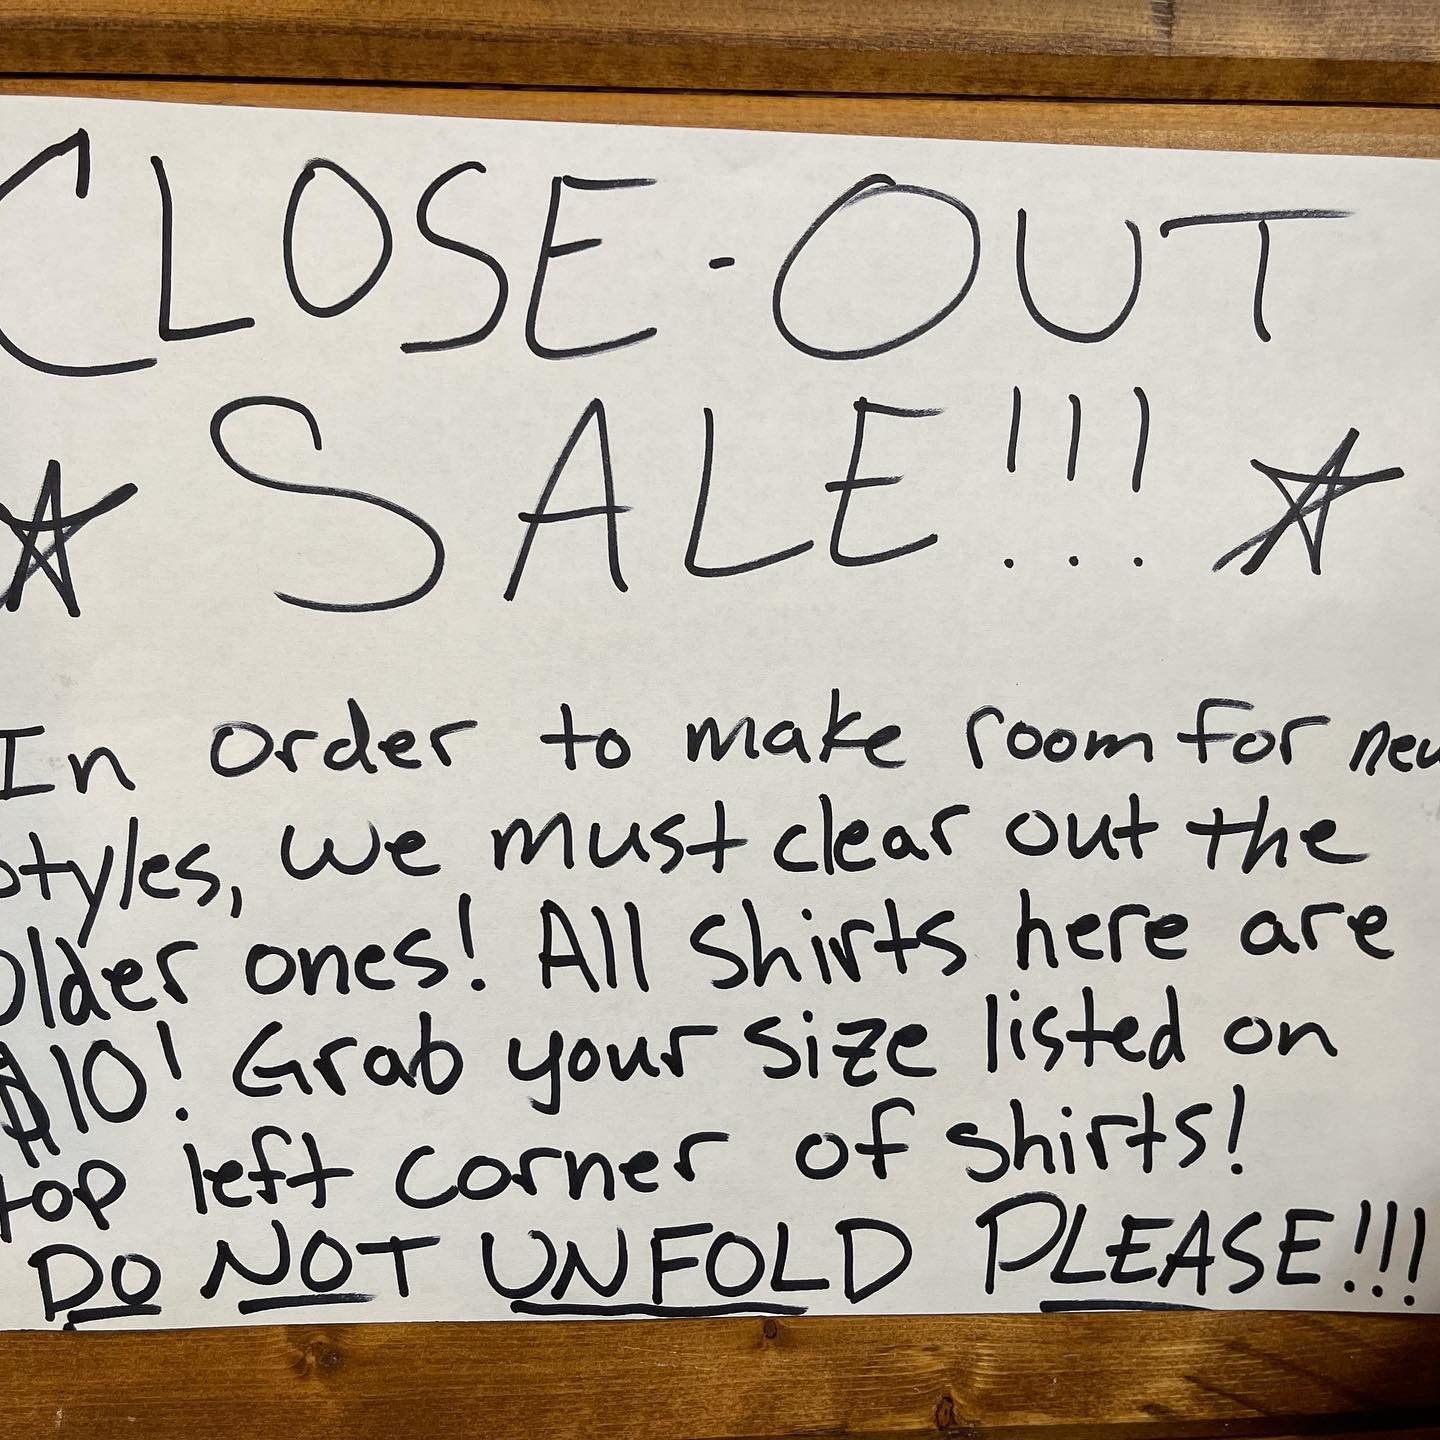 CLOSE-OUT
☆ SALE!!! ☆
In order to make room for new
styles, we must clear out the
older ones! All shirts here are
$10! Grab your size listed on
top left corner of shirts!
DO NOT UNFOLD PLEASE!!!